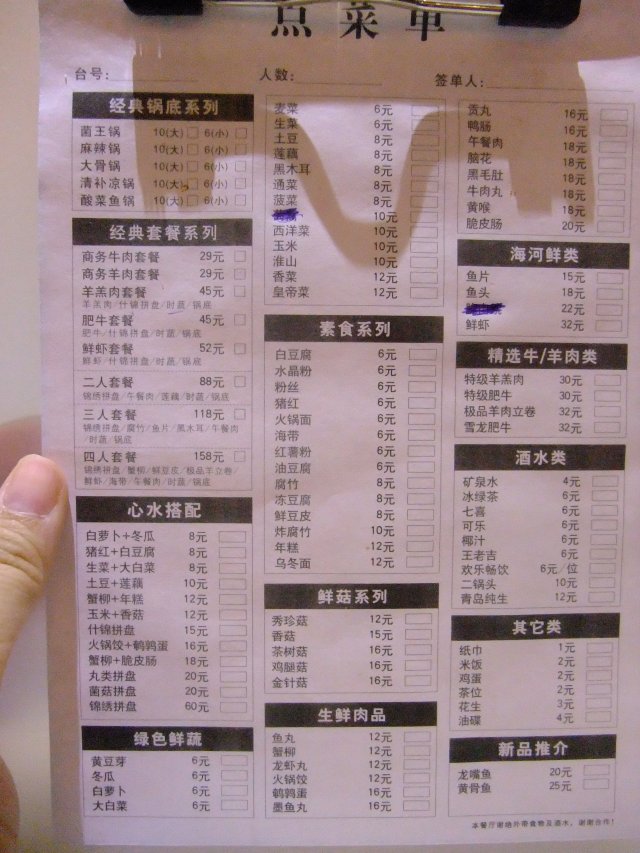 点菜单
台号: 人数: 签单人:
经典锅底系列
菌王锅 10(大) 6(小)
麻辣锅 10(大) 6(小)
大骨锅 10(大) 6(小)
清补凉锅 10(大) 6(小)
酸菜鱼锅 10(大) 6(小)
经典套餐系列
商务牛肉套餐 29元
商务羊肉套餐 29元
羊羔肉套餐 45元
羊羔肉/什锦拼盘/时蔬/锅底
肥牛套餐 45元
肥牛/什锦拼盘/时蔬/锅底
鲜虾套餐 52元
鲜虾/什锦拼盘/时蔬/锅底
二人套餐 88元
锦绣拼盘/午餐肉/莲藕/时蔬/锅底
三人套餐 118元
锦绣拼盘/腐竹/鱼片/黑木耳/午餐肉
/时蔬/锅底
四人套餐 158元
锦绣拼盘/蟹柳/鲜豆皮/极品羊立卷/
鲜虾/海带/午餐肉/时蔬/锅底
心水搭配
白萝卜+冬瓜 8元
猪红+白豆腐 8元
生菜+大白菜 8元
土豆+莲藕 10元
蟹柳+年糕 12元
玉米+香菇 12元
什锦拼盘 15元
火锅饺+鹌鹑蛋 16元
蟹柳+脆皮肠 18元
丸类拼盘 20元
菌菇拼盘 20元
锦绣拼盘 60元
绿色鲜蔬
黄豆芽 6元
冬瓜 6元
白萝卜 6元
大白菜 6元
麦菜 6元
生菜 6元
土豆 8元
莲藕 8元
黑木耳 8元
通菜 8元
菠菜 8元
10元
西洋菜 10元
玉米 10元
淮山 10元
香菜 12元
皇帝菜 12元
素食系列
白豆腐 6元
水晶粉 6元
粉丝 6元
猪红 6元
火锅面 6元
海带 6元
红薯粉 6元
油豆腐 6元
腐竹 8元
冻豆腐 8元
鲜豆皮 8元
炸腐竹 10元
年糕 12元
乌冬面 12元
鲜菇系列
秀珍菇 12元
香菇 15元
茶树菇 16元
鸡腿菇 16元
金针菇 16元
生鲜肉品
鱼丸 12元
蟹柳 12元
龙虾丸 12元
火锅饺 12元
鹌鹑蛋 16元
墨鱼丸 16元
贡丸 16元
鸭肠 16元
午餐肉 18元
脑花 18元
黑毛肚 18元
牛肉丸 18元
黄喉 18元
脆皮肠 20元
海河鲜类
鱼片 15元
鱼头 18元
22元
鲜虾 32元
精选牛/羊肉类
特级羊羔肉 30元
特级肥牛 30元
极品羊肉立卷 32元
雪龙肥牛 32元
酒水类
矿泉水 4元
冰绿茶 6元
七喜 6元
可乐 6元
椰汁 6元
王老吉 6元
欢乐畅饮 6元/位
二锅头 10元
青岛纯生 12元
其它类
纸巾 1元
米饭 2元
鸡蛋 2元
茶位 2元
花生 3元
油碟 4元
新品推介
龙嘴鱼 20元
黄骨鱼 25元
本餐厅谢绝外带食物及酒水,谢谢合作!